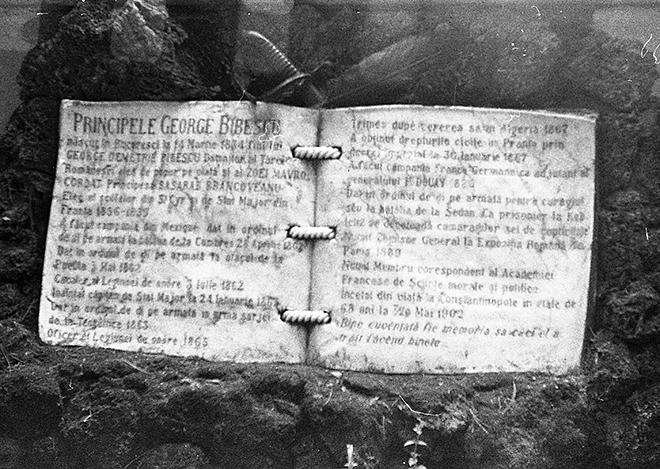 PRINCIPELE GEORGE BIBESCU
născut in Bucuresci la 14 Martie 1834 fiiul lui
GEORGE DEMETRIE BIBESCU Domnitor al Țărei
Românesci ales de popor pe viață și al ZOEI MAVRO
CORDAT Principesă BASARAB BRANCOVEANU
Elev al școlelor din St Cyr și de Stat Major din
Franta 1856-1859
A făcut campania din Mexique dat in ordinul
de di pe armată la de la Cumbres 28 Aprilie 1862
Dat in ordinul de di pe armată la atacul de la
Puebla 5 Mai 1862
Cavaler al Legiunei de onóre 3 Iulie 1862
Inaintat căpitan de Stat Major la 24 Ianuarie 1863
Dat in ordinul de di pe armată in urma șarjei
de la 1865
Oficer al Legiunei de onóre 1865
Trimes după cererea sa in Algeria 1867
A obținut drepturile civile in Franta prin
decret imperial la 30 Ianuarie 1867
A făcut campania Franco Germanica adjutant al
generalului F. DOUAY 1870
Dat in ordinul de di pe armată pentru curagiul
seu la bătălia de la Sedan Ca prisonier la Kob
lenz se devotează camaragilor sei de captivitate
Numit Comisar General la Expoziția Română din
Paris 1889
Numit Membru corespondent al Academiei
Francese de Sciințe morale și politice
Incetat din viață la Constantinopole in etate de
68 ani la Mai 1902
Bine cuvêntată fie memoria sa căci el a
trăit făcênd binele